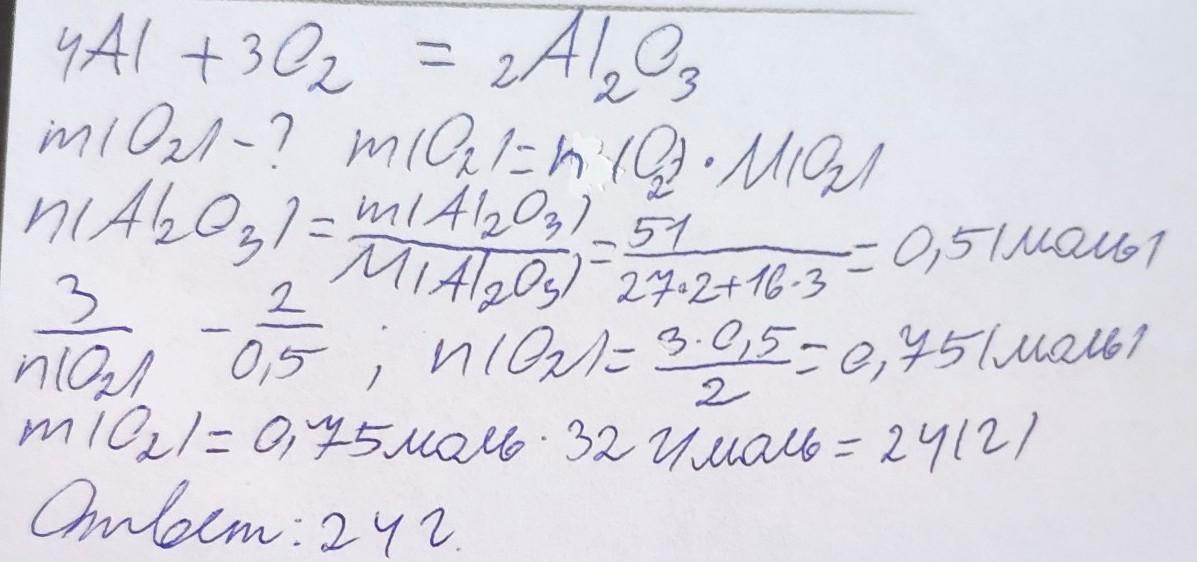 4Al + 3O₂ = 2Al₂O₃
m(O₂) - ? m(O₂) = n(O₂) · M(O₂)
n(Al₂O₃) = m(Al₂O₃)/M(Al₂O₃) = 51/27·2+16·3 = 0,5(моль)
3/n(O₂) - 2/0,5 ; n(O₂) = 3·0,5/2 = 0,75(моль)
m(O₂) = 0,75моль · 32 г/моль = 24(г)
Ответ: 24 г.